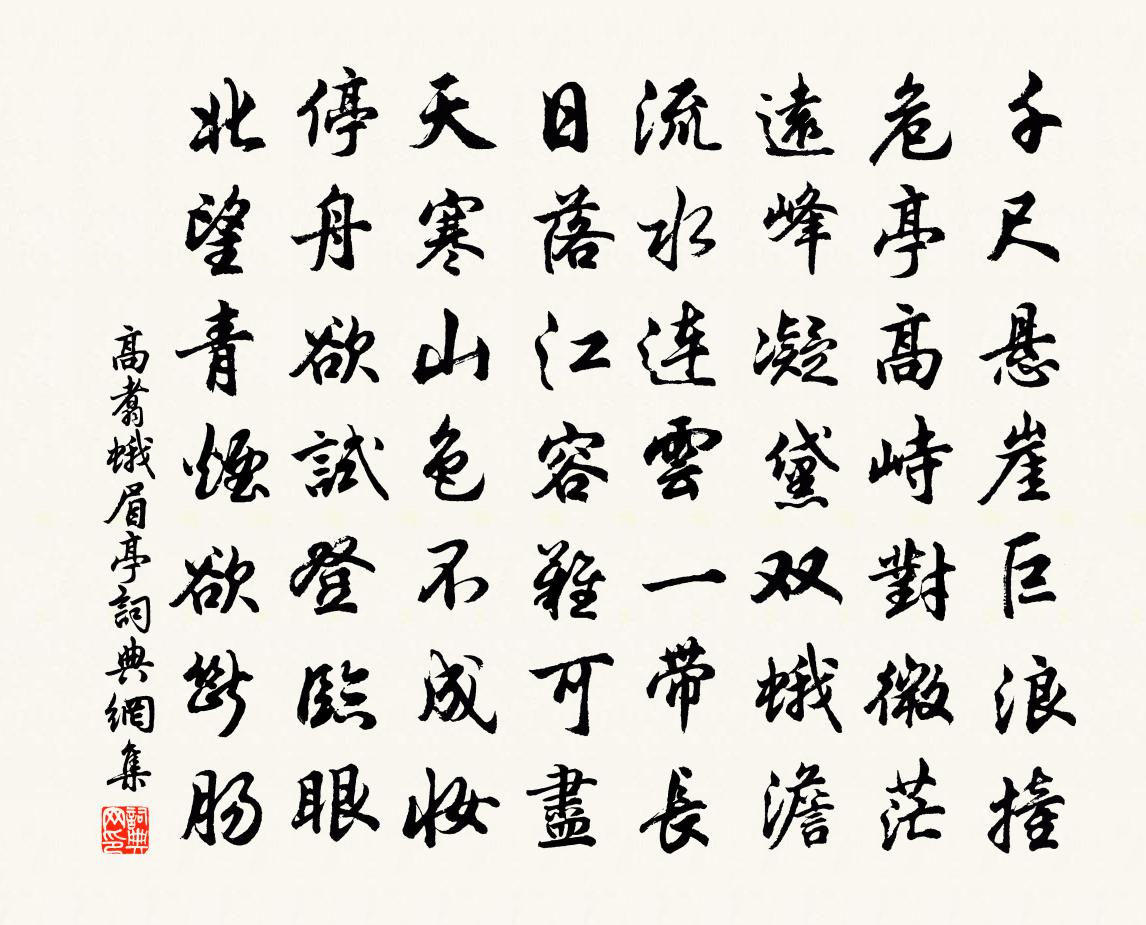 千尺悬崖巨浪撞
危亭高峙對微茫
遠峰凝黛双蛾澹
流水連雲一帶長
日落江容難可盡
天寒山色不成妆
停舟欲試登臨眼
北望青煙欲斷肠
高翥蛾眉亭詞典網集
詞典网印